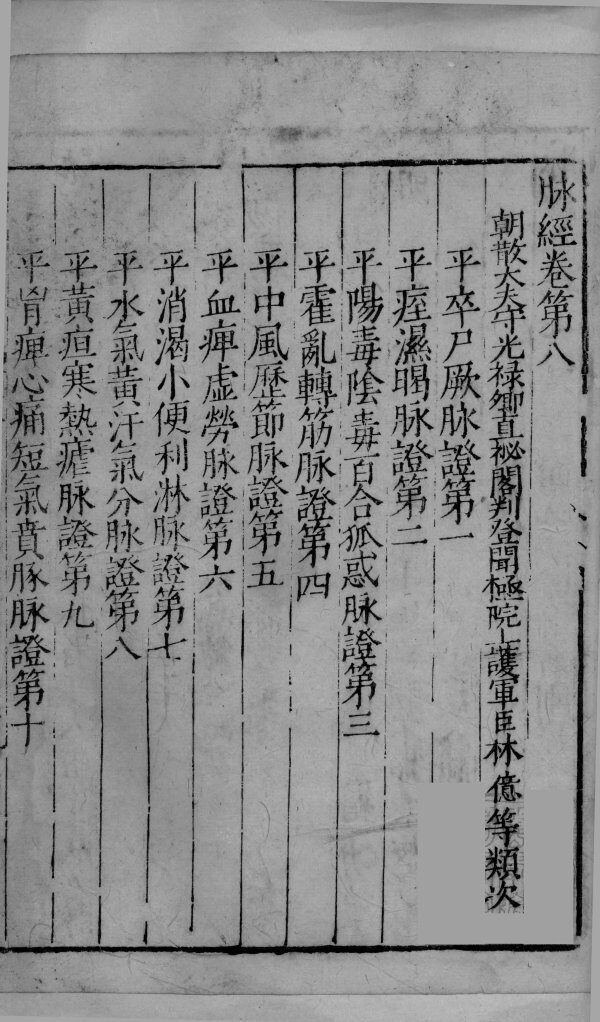 脉經卷第八
朝散大夫守光祿卿直祕閣判登聞檢院上護軍臣林億等類次
平卒尸厥脉證第一
平痓濕暍脉證第二
平陽毒陰毒百合狐惑脉證第三
平霍亂轉筋脉證第四
平中風歷節脉證第五
平血痺虛勞脉證第六
平消渴小便利淋脉證第七
平水氣黃汗氣分脉證第八
平黃疸寒熱瘧脉證第九
平胷痺心痛短氣賁豚脉證第十